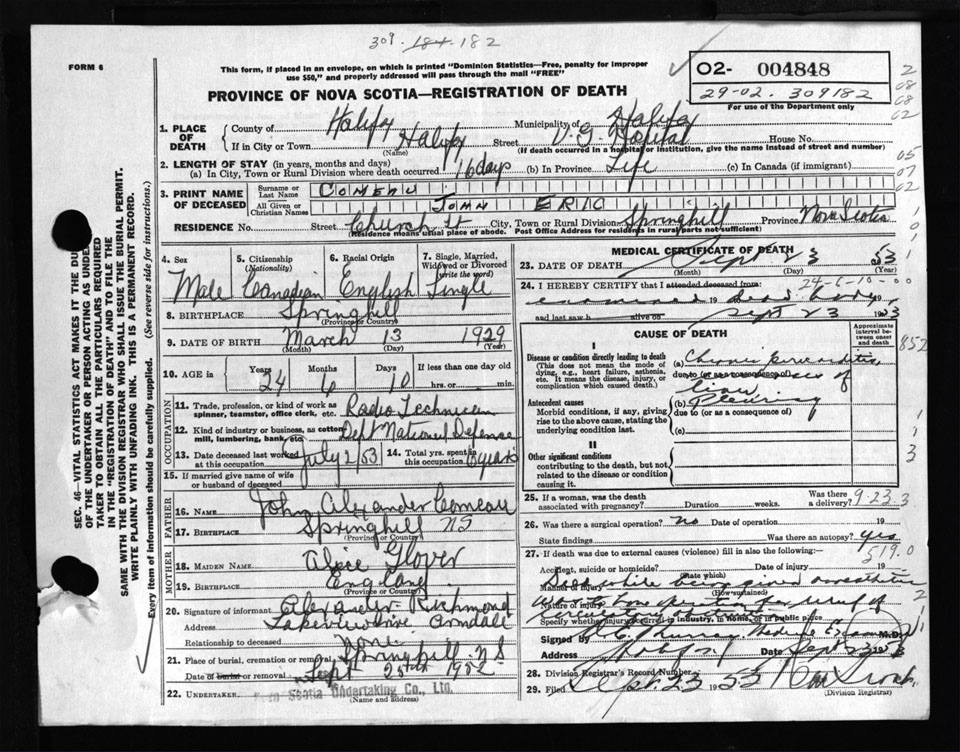 309. 184. 182
FORM 6
This form, if placed in an envelope, on which is printed "Dominion Statistics—Free, penalty for improper
use $50," and properly addressed will pass through the mail "FREE"
O2- 004848
29-02. 309182
For use of the Department only
PROVINCE OF NOVA SCOTIA—REGISTRATION OF DEATH
1. PLACE OF DEATH
County of Halifax Municipality of Halifax
If in City or Town Halifax Street V. G. Hospital House No.
(Name) (If death occurred in a hospital or institution, give the name instead of street and number)
2. LENGTH OF STAY (in years, months and days)
(a) In City, Town or Rural Division where death occurred 16 days (b) In Province Life (c) In Canada (if immigrant)
3. PRINT NAME OF DECEASED
Surname or Last Name COMEAU
All Given or Christian Names JOHN ERIC
RESIDENCE No. Street Church St City, Town or Rural Division Springhill Province Nova Scotia
(Residence means usual place of abode. Post Office Address for residents in rural parts not sufficient)
4. Sex Male
5. Citizenship (Nationality) Canadian
6. Racial Origin English
7. Single, Married, Widowed or Divorced (write the word) Single
8. BIRTHPLACE Springhill
(Province or Country)
9. DATE OF BIRTH March 13 1929
(Month) (Day) (Year)
10. AGE in Years 24 Months 6 Days 10 If less than one day old hrs. or min.
OCCUPATION
11. Trade, profession, or kind of work as spinner, teamster, office clerk, etc. Radio Technician
12. Kind of industry or business, as cotton mill, lumbering, bank, etc. Dept National Defense
13. Date deceased last worked at this occupation July 2/53
14. Total yrs. spent in this occupation 6 years
15. If married give name of wife or husband of deceased
FATHER
16. Name John Alexander Comeau
17. Birthplace Springhill NS
(Province or Country)
MOTHER
18. MAIDEN NAME Alice Glover
19. BIRTHPLACE England
(Province or Country)
20. Signature of informant Alexander Richmond
Address Lakeview Drive Armdale
Relationship to deceased None
21. Place of burial, cremation or removal Springhill N.S
Date of burial or removal Sept 25th 1952
22. UNDERTAKER Nova Scotia Undertaking Co., Ltd.
(Name and address)
MEDICAL CERTIFICATE OF DEATH
23. DATE OF DEATH Sept 23 1953
(Month) (Day) (Year)
24-6-10-00
24. I HEREBY CERTIFY that I attended deceased from:
examined 19 dead body 19
and last saw h alive on Sept 23 1953
CAUSE OF DEATH
Approximate interval between onset and death
I
Disease or condition directly leading to death
(This does not mean the mode of dying, e.g., heart failure, asthenia, etc. It means the disease, injury, or complication which caused death.)
(a) Chronic pericarditis
due to (or as a consequence of)
Antecedent causes
Morbid conditions, if any, giving rise to the above cause, stating the underlying condition last.
(b) Pleurisy
due to (or as a consequence of)
(c)
II
Other significant conditions
contributing to the death, but not related to the disease or condition causing it.
852
1
3
25. If a woman, was the death associated with pregnancy? Duration weeks. Was there a delivery?
9-23.3
26. Was there a surgical operation? no Date of operation 19
State findings Was there an autopsy? yes
519.0
27. If death was due to external causes (violence) fill in also the following:—
Accident, suicide or homicide? Date of injury 19
(State which)
Manner of injury Died while being given anaesthetic
(How sustained)
Nature of injury
Specify whether injury occurred in industry, in home, or in public place
Signed by Murray Medical M.D.
Address Halifax Date Sept 23 1953
28. Division Registrar's Record Number
29. Filed Sept. 23 1953
(Division Registrar)
SEC. 46—VITAL STATISTICS ACT MAKES IT THE DUTY
OF THE UNDERTAKER OR PERSON ACTING AS UNDER-
TAKER TO OBTAIN ALL THE PARTICULARS REQUIRED
IN THE "REGISTRATION OF DEATH" AND TO FILE THE
SAME WITH THE DIVISION REGISTRAR WHO SHALL ISSUE THE BURIAL PERMIT.
WRITE PLAINLY WITH UNFADING INK. THIS IS A PERMANENT RECORD.
Every item of information should be carefully supplied. (See reverse side for instructions.)